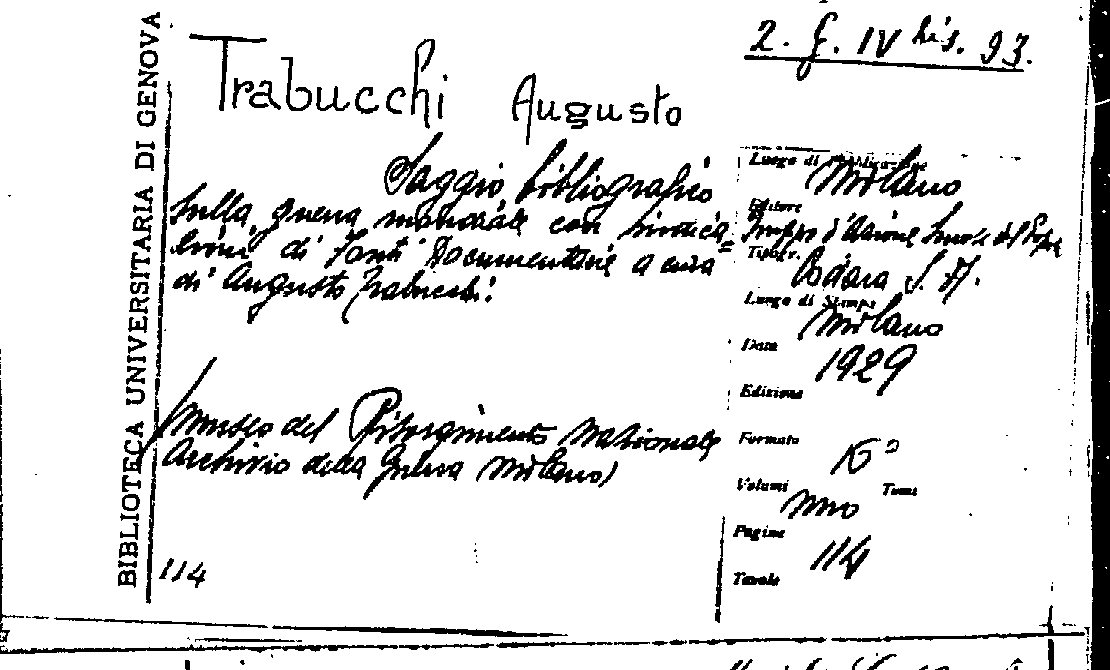 BIBLIOTECA UNIVERSITARIA DI GENOVA
2. g. IV bis. 93.
Trabucchi Augusto
Saggio bibliografico
sulla guerra mondiale con indica=
zioni di Fonti Documentarie a cura
di Augusto Trabucchi.
(Museo del Risorgimento Nazionale
Archivio della Guerra Milano)
114
Luogo di Pubblicazione
Milano
Editore
Gruppo d'Azione Scuole del Popolo
Tipogr.
Codara S. A.
Luogo di Stampa
Milano
Data
1929
Edizione
Formato
16°
Volumi uno Tomi
Pagine
114
Tavole